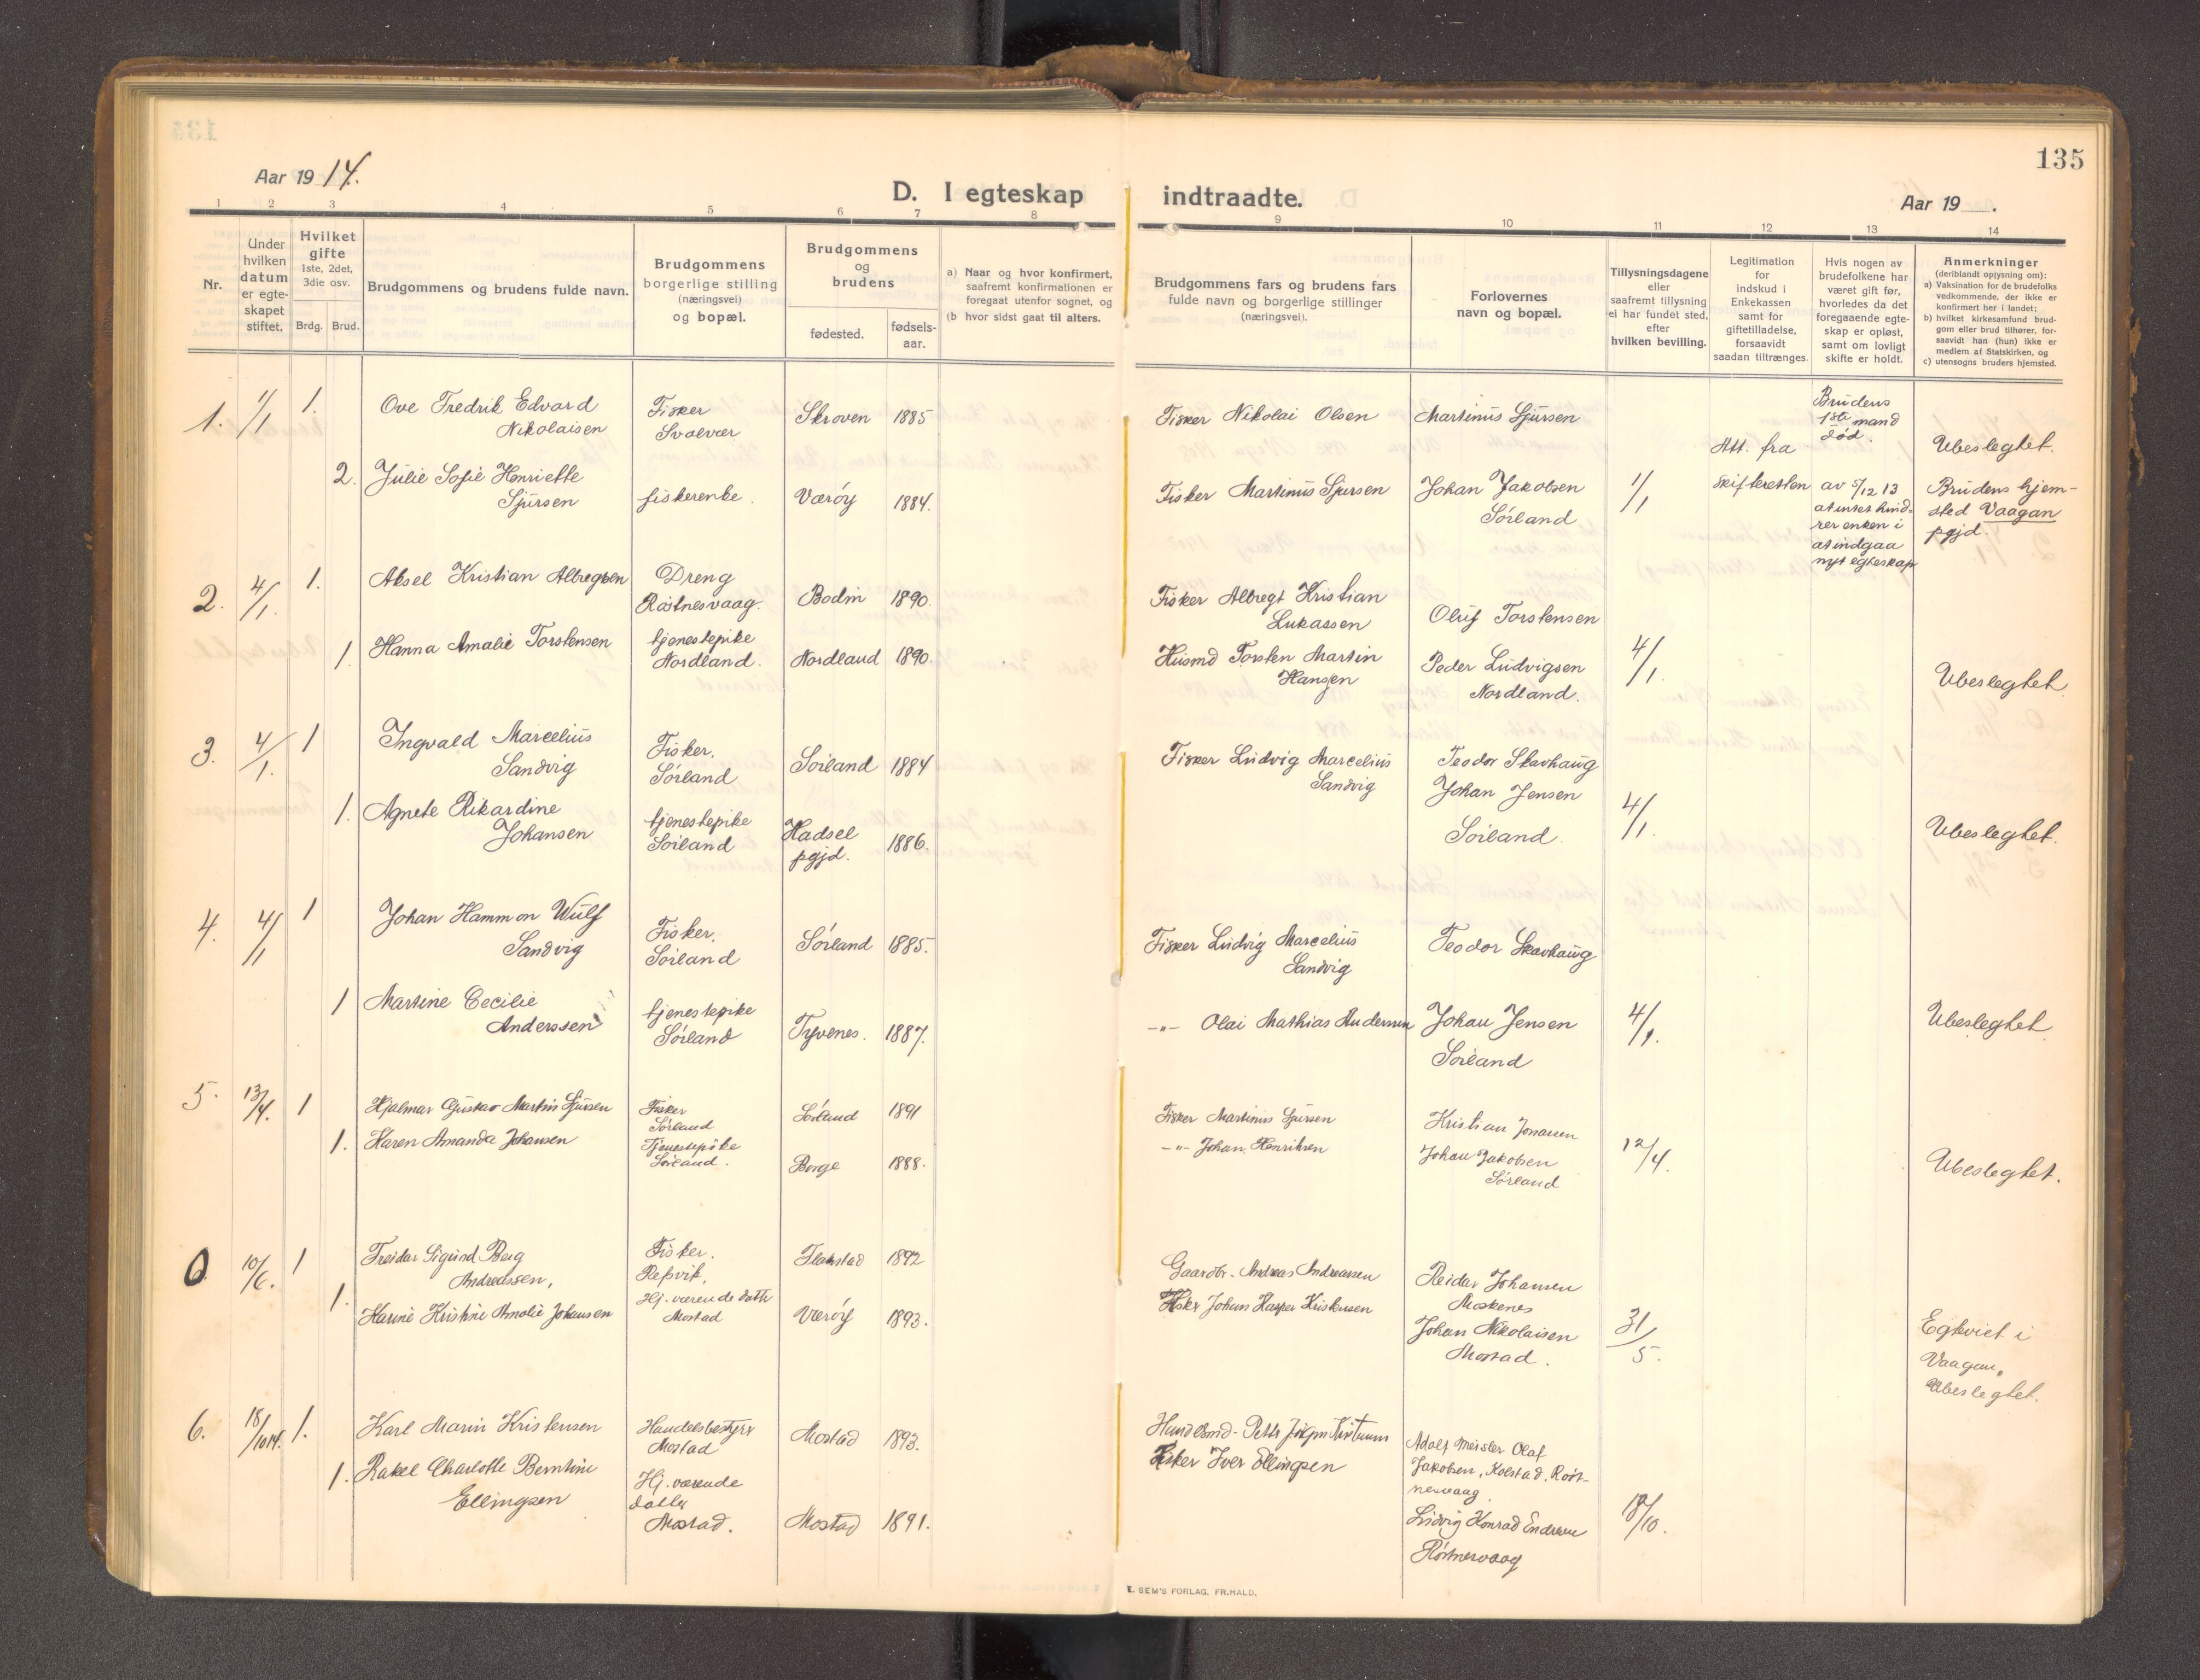 135
Aar 19 14.
D. I egteskap indtraadte.
Aar 19 .
1 2 3 4 5 6 7 8 9 10 11 12 13 14
Nr.
Under hvilken datum er egte-skapet stiftet.
Hvilket gifte
1ste, 2det, 3die osv.
Brdg. Brud.
Brudgommens og brudens fulde navn.
Brudgommens borgerlige stilling (næringsvei) og bopæl.
Brudgommens og brudens
fødested.
fødsels-aar.
a) Naar og hvor konfirmert, saafremt konfirmationen er foregaat utenfor sognet, og
(b hvor sidst gaat til alters.
Brudgommens fars og brudens fars fulde navn og borgerlige stillinger (næringsvei).
Forlovernes navn og bopæl.
Tillysningsdagene eller saafremt tillysning ei har fundet sted, efter hvilken bevilling.
Legitimation for indskud i Enkekassen samt for giftetilladelse, forsaavidt saadan tiltrænges.
Hvis nogen av brudefolkene har været gift før, hvorledes da det foregaaende egte-skap er opløst, samt om lovligt skifte er holdt.
Anmerkninger
(deriblandt opiysning om):
a) Vaksination for de brudefolks vedkommende, der ikke er konfirmert her i landet;
b) hvilket kirkesamfund brud-gom eller brud tilhører, for-saavidt han (hun) ikke er medlem af Statskirken, og
c) utensogns bruders hjemsted.
1. 1/1 1. Ove Fredrik Edvard Nikolaisen
Fisker Svolvær
Skroven 1885
Fisker Nikolai Olsen
Martinus Sjursen
Brudens 1ste mand død.
2. Julie Sofie Henriette Sjursen
fiskerenke.
Værøy 1884.
Fisker Martinus Sjursen
Johan Jakobsen Sörland
1/1
Att. fra skifteretten av 5/12 13 at intet hind-rer enken i at indgaa nyt egteskap
Ubeslegtet.
Brudens hjem-sted Vaagan pgjd.
2. 4/1. 1. Aksel Kristian Albregtsen
Dreng Röstnesvaag.
Bodin 1890.
Fisker Albregt Kristian Lukassen
Oluf Torstensen
1. Hanna Amalie Torstensen
tjenestepike Nordland.
Nordland 1890.
Husmd Torsten Martin Hansen
Peder Ludvigsen Nordland.
4/1.
Ubeslegtet.
3. 4/1. 1 Ingvald Marcelius Sandvig
Fisker. Sörland
Sörland 1884
Fisker Ludvig Marcelius Sandvig
Teodor Skavhaug
1. Agnete Rikardine Johansen
tjenestepike Sörland
Hadsel pgjd. 1886.
Johan Jensen Sörland.
4/1.
Ubeslegtet.
4. 4/1 1 Johan Hammon Wulf Sandvig
Fisker. Sörland
Sörland 1885.
Fisker Ludvig Marcelius Sandvig
Teodor Skavhaug
1 Martine Cecilie Anderssen
tjenestepike Sörland
Tyvenes. 1887.
-"- Olai Mathias Andersen
Johan Jensen Sörland
4/1.
Ubeslegtet.
5. 13/4. 1 Hjalmar Gustav Martin Sjursen
Fisker Sörland
Sörland 1891
Fisker Martinus Sjursen
Kristian Jonassen
1. Karen Amanda Johansen
Tjenestepike Sörland.
Borge 1888.
-"- Johan Henriksen
Johan Jakobsen Sörland
12/4.
Ubeslegtet.
0 10/6. 1 Freidar Sigurd Berg Andreassen,
Fisker. Refsvik.
Flakstad 1892
Gaardbr. Andreas Andreassen
Reidar Johansen Moskenes
1. Karine Kristine Amalie Johansen
Hj. værende datter Mostad
Værøy 1893.
Fisker Johan Kasper Kristensen
Johan Nikolaisen Mostad.
31/5.
Egteviet i Vaagan. Ubeslegtet.
6. 18/10 14. 1. Karl Marin Kristensen
Handelsbestyrer Mostad
Mostad 1893.
Handelsmd.
Adolf Meisler Olaf Jakobsen, Kolstad, Röst-nesvaag
1. Rakel Charlotte Berntine Ellingsen
Hj. værende datter Mostad.
Mostad 1891.
Fisker Iver Ellingsen
Ludvig Konrad Endresen Röstnesvaag
18/10.
E. SEM'S FORLAG, FR.HALD.